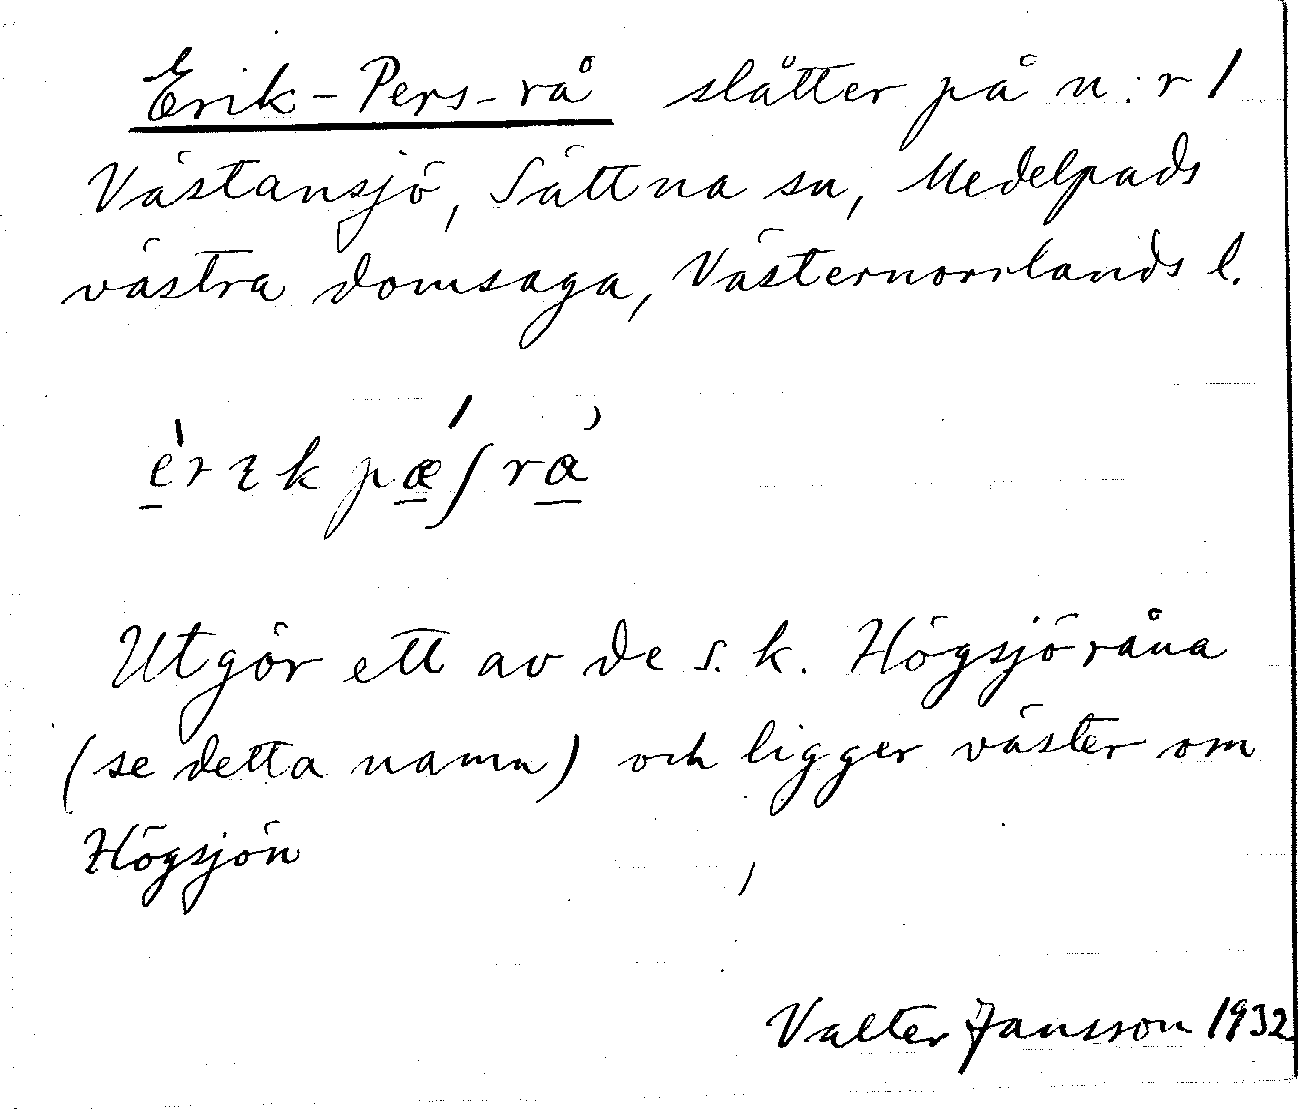 Erik-Pers-rå slåtter på n:r 1
Västansjö, Sättna sn, Medelpads
västra domsaga, Västernorrlands l.
Utgör ett av de s.k. Högsjöråna
(se detta namn) och ligger väster om
Högsjön
Valter Jansson 1932